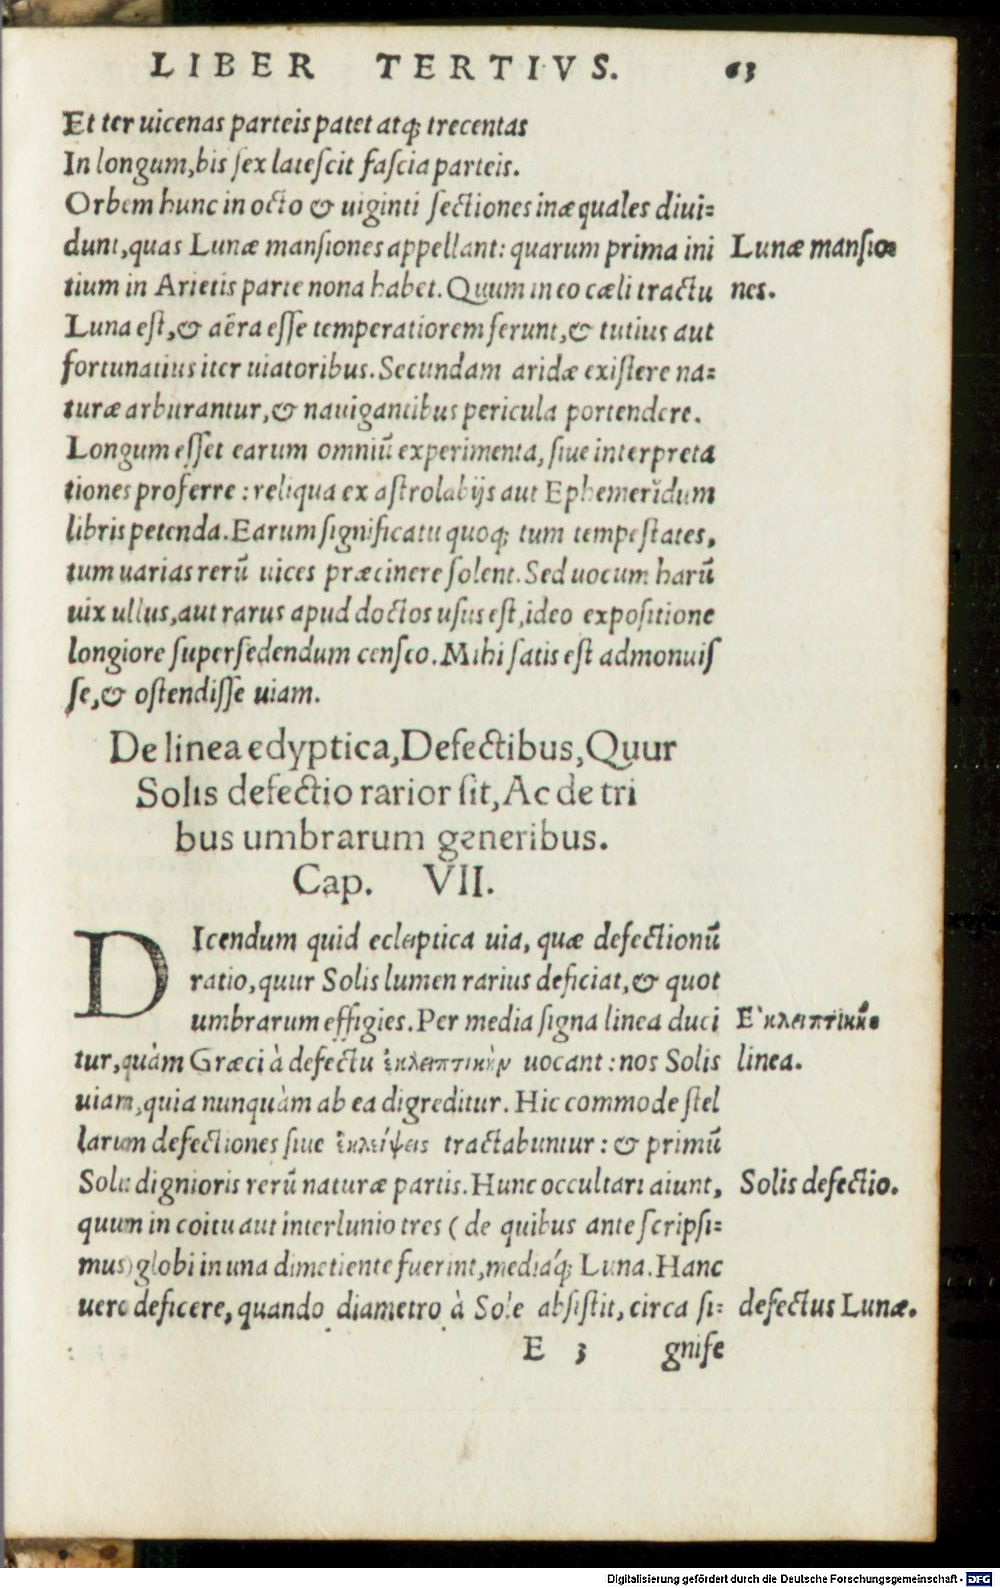 LIBER TERTIVS. 63
Et ter uicenas parteis patet atq; trecentas
In longum, bis sex latescit fascia parteis.
Orbem hunc in octo & uiginti sectiones inæquales diui=
dunt, quas Lunæ mansiones appellant: quarum prima ini
Lunæ mansio
tium in Arietis parte nona habet. Quum in eo cæli tractu
nes.
Luna est, & aëra esse temperatiorem ferunt, & tutius aut
fortunatius iter uiatoribus. Secundam aridæ existere na=
turæ arbitrantur, & nauigantibus pericula portendere.
Longum esset earum omniũ experimenta, siue interpreta
tiones proferre: reliqua ex astrolabijs aut Ephemeridum
libris petenda. Earum significatu quoq; tum tempestates,
tum uarias rerũ uices præcinere solent. Sed uocum harũ
uix ullus, aut rarus apud doctos usus est, ideo expositione
longiore supersedendum censeo. Mihi satis est admonuis
se, & ostendisse uiam.
De linea eclyptica, Defectibus, Quur
Solis defectio rarior sit, Ac de tri
bus umbrarum generibus.
Cap. VII.
DIcendum quid ecleptica uia, quæ defectionũ
ratio, quur Solis lumen rarius deficiat, & quot
umbrarum effigies. Per media signa linea duci
Ἐκλειπτικὴ
tur, quàm Græci à defectu ἐκλειπτικὴν uocant: nos Solis
linea.
uiam, quia nunquàm ab ea digreditur. Hic commode stel
larum defectiones siue ἐκλείψεις tractabuntur: & primũ
Solis dignioris rerũ naturæ partis. Hunc occultari aiunt,
Solis defectio.
quum in coitu aut interlunio tres (de quibus ante scripsi=
mus) globi in una dimetiente fuerint, mediáq; Luna. Hanc
uero deficere, quando diametro à Sole absistit, circa si=
defectus Lunæ.
E 3 gnife
Digitalisierung gefördert durch die Deutsche Forschungsgemeinschaft - DFG